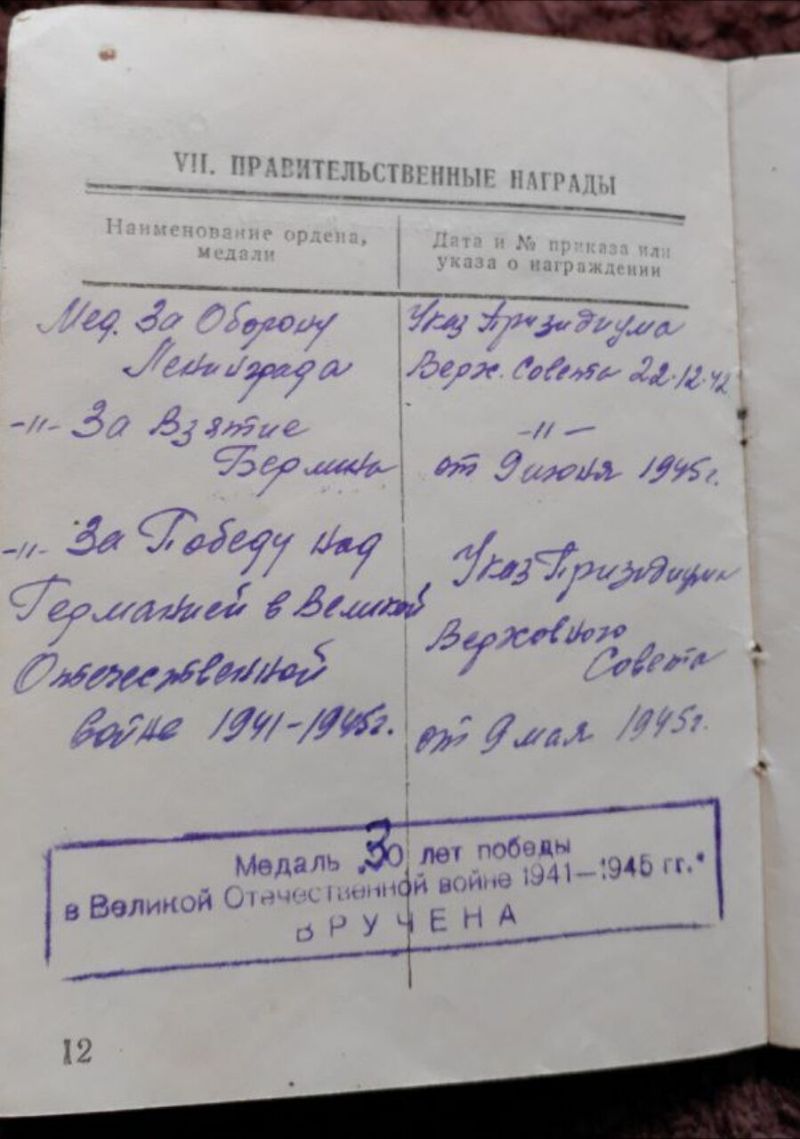 VII. ПРАВИТЕЛЬСТВЕННЫЕ НАГРАДЫ
Наименование ордена,
медали
Дата и № приказа или
указа о награждении
Мед. За Оборону
Ленинграда
Указ Призидиума
Верх. Совета 22.12.42
-"- За Взятие
Берлина
-"-
от 9 июня 1945г.
-"- За Победу над
Германией в Великой
Отечественной
войне 1941-1945г.
Указ Призидиума
Верховного
Совета
от 9 мая 1945г.
Медаль 30 лет победы
в Великой Отечественной войне 1941—1945 гг."
ВРУЧЕНА
12